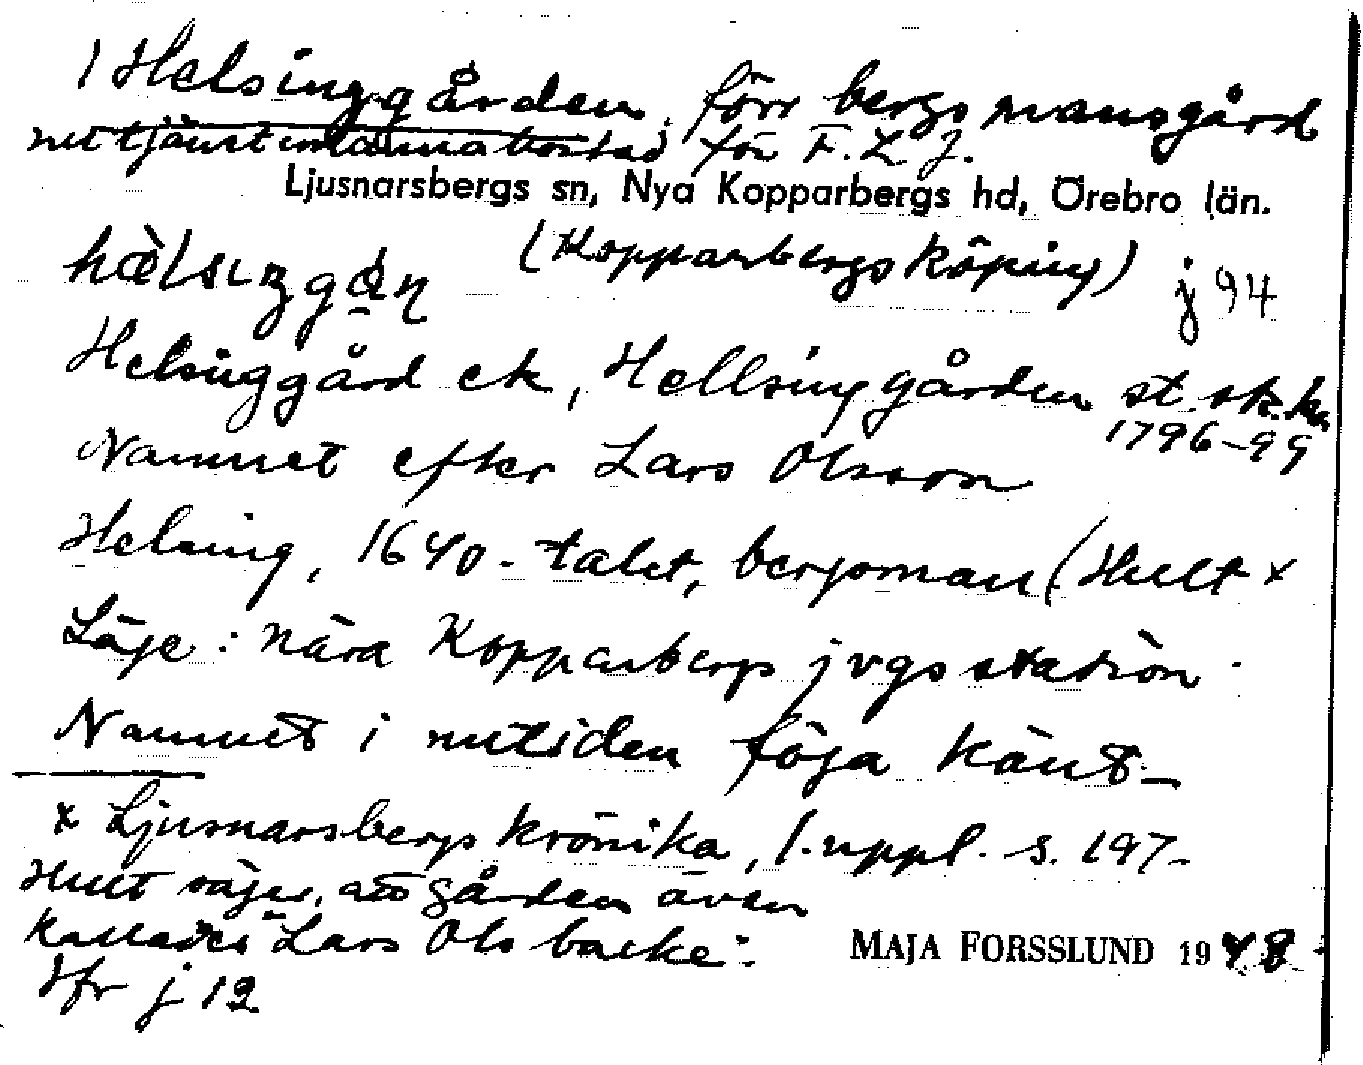 1 Helsinggården, förr bergsmansgård
nu tjänstemannabostad för F.L.J.
Ljusnarsbergs sn, Nya Kopparbergs hd, Örebro län.
hæ̀lsıŋgɑ̊ɳ (Kopparbergs köping) j 94
Helsinggård ek, Hellsinggården st. sk. ka
1796-99
Namnet efter Lars Olsson
Helsing, 1640-talet, bergsman (Hult x
Läge: nära Kopparbergs jvgsstation.
Namnet i nutiden föga känt-
x Ljusnarsbergs krönika, 1. uppl. s. 197-
Hult säger, att gården även
kallades "Lars Ols backe".
Jfr j 12
MAJA FORSSLUND 1948